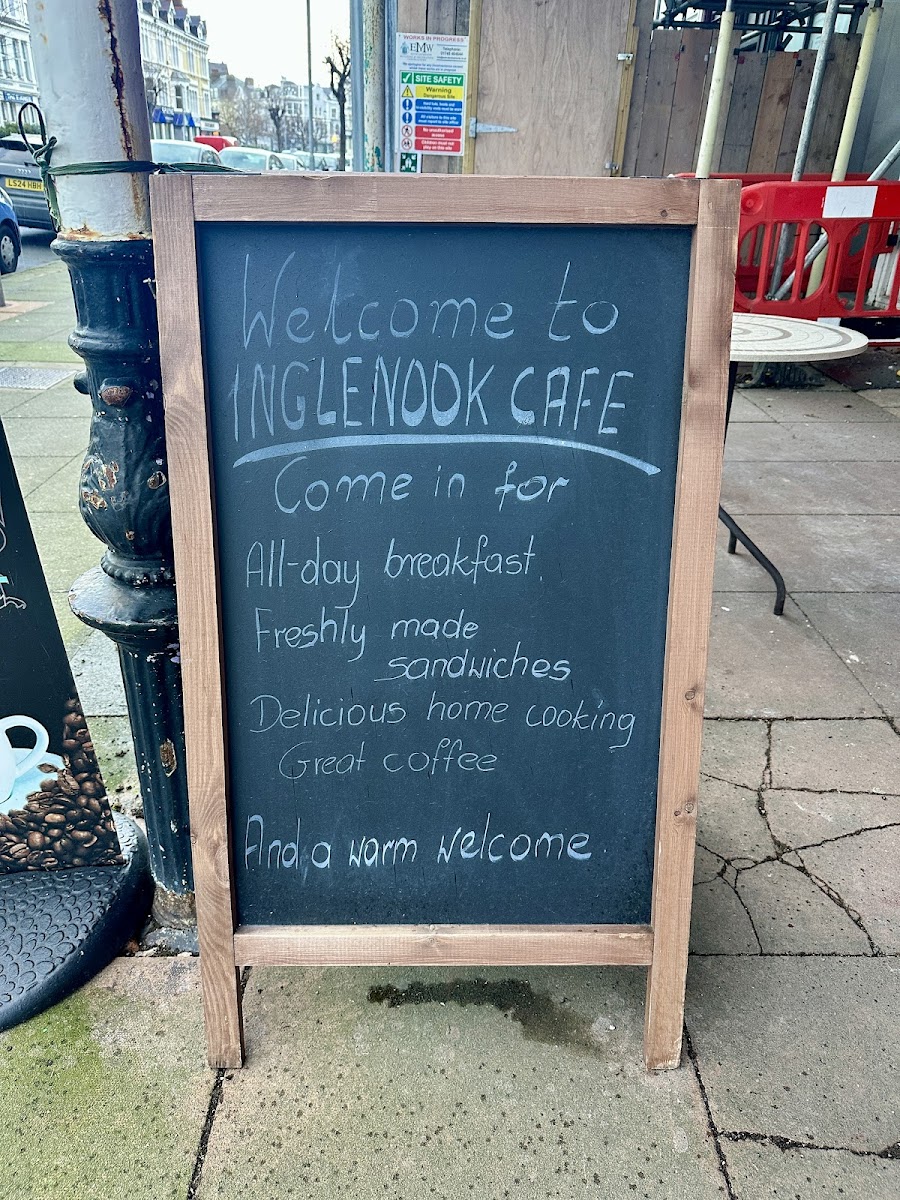 WORKS IN PROGRESS
EMW
SITE SAFETY
Warning
Dangerous Site
LS24 HBH
Welcome to
INGLENOOK CAFE
Come in for
All-day breakfast.
Freshly made
sandwiches
Delicious home cooking
Great coffee
And, a warm welcome.